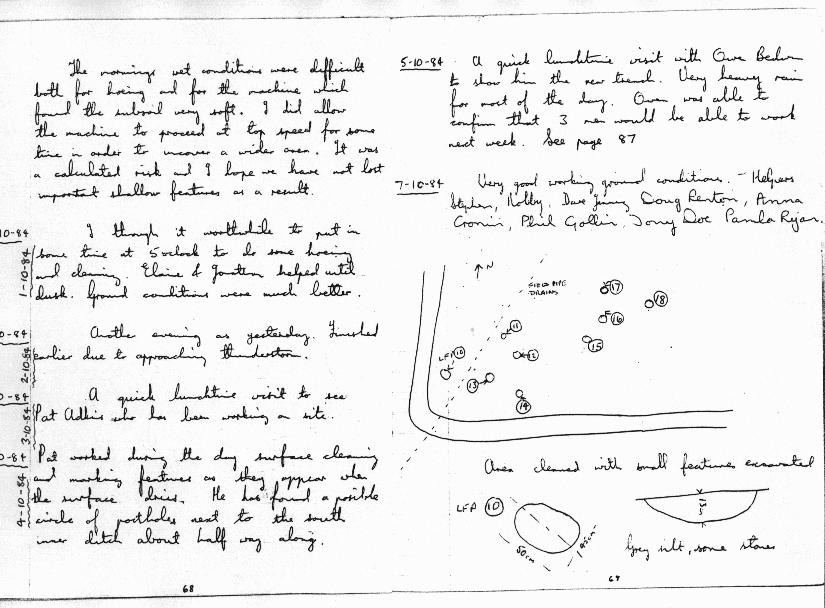 The mornings wet conditions were difficult
both for hoeing and for the machine which
found the subsoil very soft. I did allow
the machine to proceed at top speed for some
time in order to uncover a wider area. It was
a calculated risk and I hope we have not lost
important shallow features as a result.
10-84
1-10-84
I though it worthwhile to put in
some time at 5 oclock to do some hoeing
and cleaning. Elaine & Jonathan helped until
dusk. Ground conditions were much better.
0-84
2-10-84
Another evening as yesterday. Finished
earlier due to approaching thunderstorm.
0-84
3-10-84
A quick lunchtime visit to see
Pat Adkins who has been working on site.
0-84
4-10-84
Pat worked during the day surface cleaning
and marking features as they appear when
the surface dries. He has found a possible
circle of postholes next to the south
inner ditch about half way along.
68
5-10-84 A quick lunchtime visit with Owen
to show him the new trench. Very heavy rain
for most of the day. Owen was able to
confirm that 3 men would be able to work
next week. See page 87
7-10-84 Very good working ground conditions. - Helpers
Stephen, Dave Doug Renton, Anna
Cronin, Phil Gollin, Tony Doc Pamla Ryan.
N
FIELD PIPE
DRAINS
17
18
16
11
15
LFA 10
12
13
14
Area cleaned with small features excavated
LFA 10
50cm
45cm
Grey silt, some stones